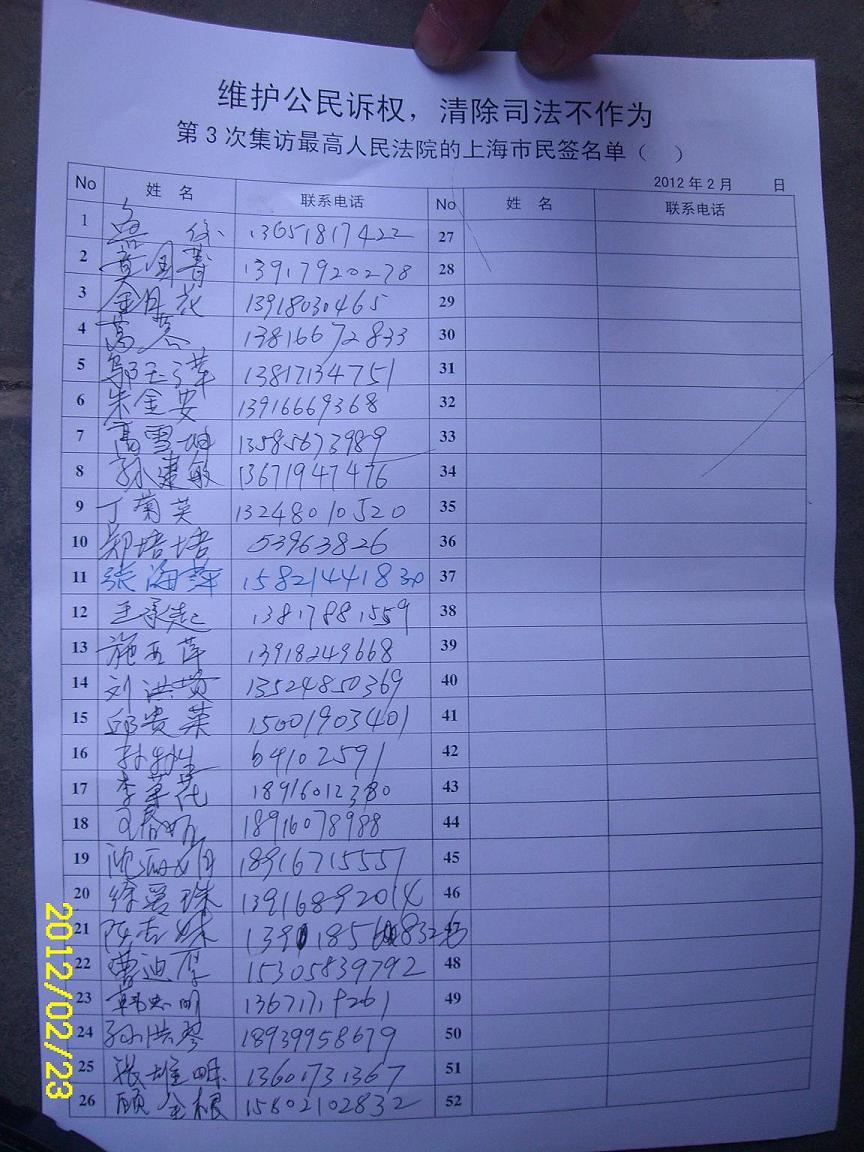 维护公民诉权，清除司法不作为
第3次集访最高人民法院的上海市民签名单（ ）
2012年2月 日
No 姓 名 联系电话 No 姓 名 联系电话
1 13651817422 27
2 13917920278 28
3 金月花 13918030465 29
4 13816672833 30
5 邬玉萍 13817134751 31
6 朱金安 13916669368 32
7 高雪坤 13585673989 33
8 孙建敏 13671947476 34
9 丁菊英 13248010520 35
10 郑培培 53963826 36
11 张海萍 15821441830 37
12 王承起 13817881559 38
13 施 萍 13918249668 39
14 刘洪贵 13524850369 40
15 邱贵荣 15001903401 41
16 64102591 42
17 李 花 18916012380 43
18 18916078988 44
19 沈 18916715557 45
20 徐爱珠 13916892014 46
21 妹
22 曹迪厚 15305839792 48
23 韩忠明 13671719261 49
24 孙洪琴 18939958679 50
25 张雄 13601731367 51
26 顾金根 15802102832 52
2012/02/23